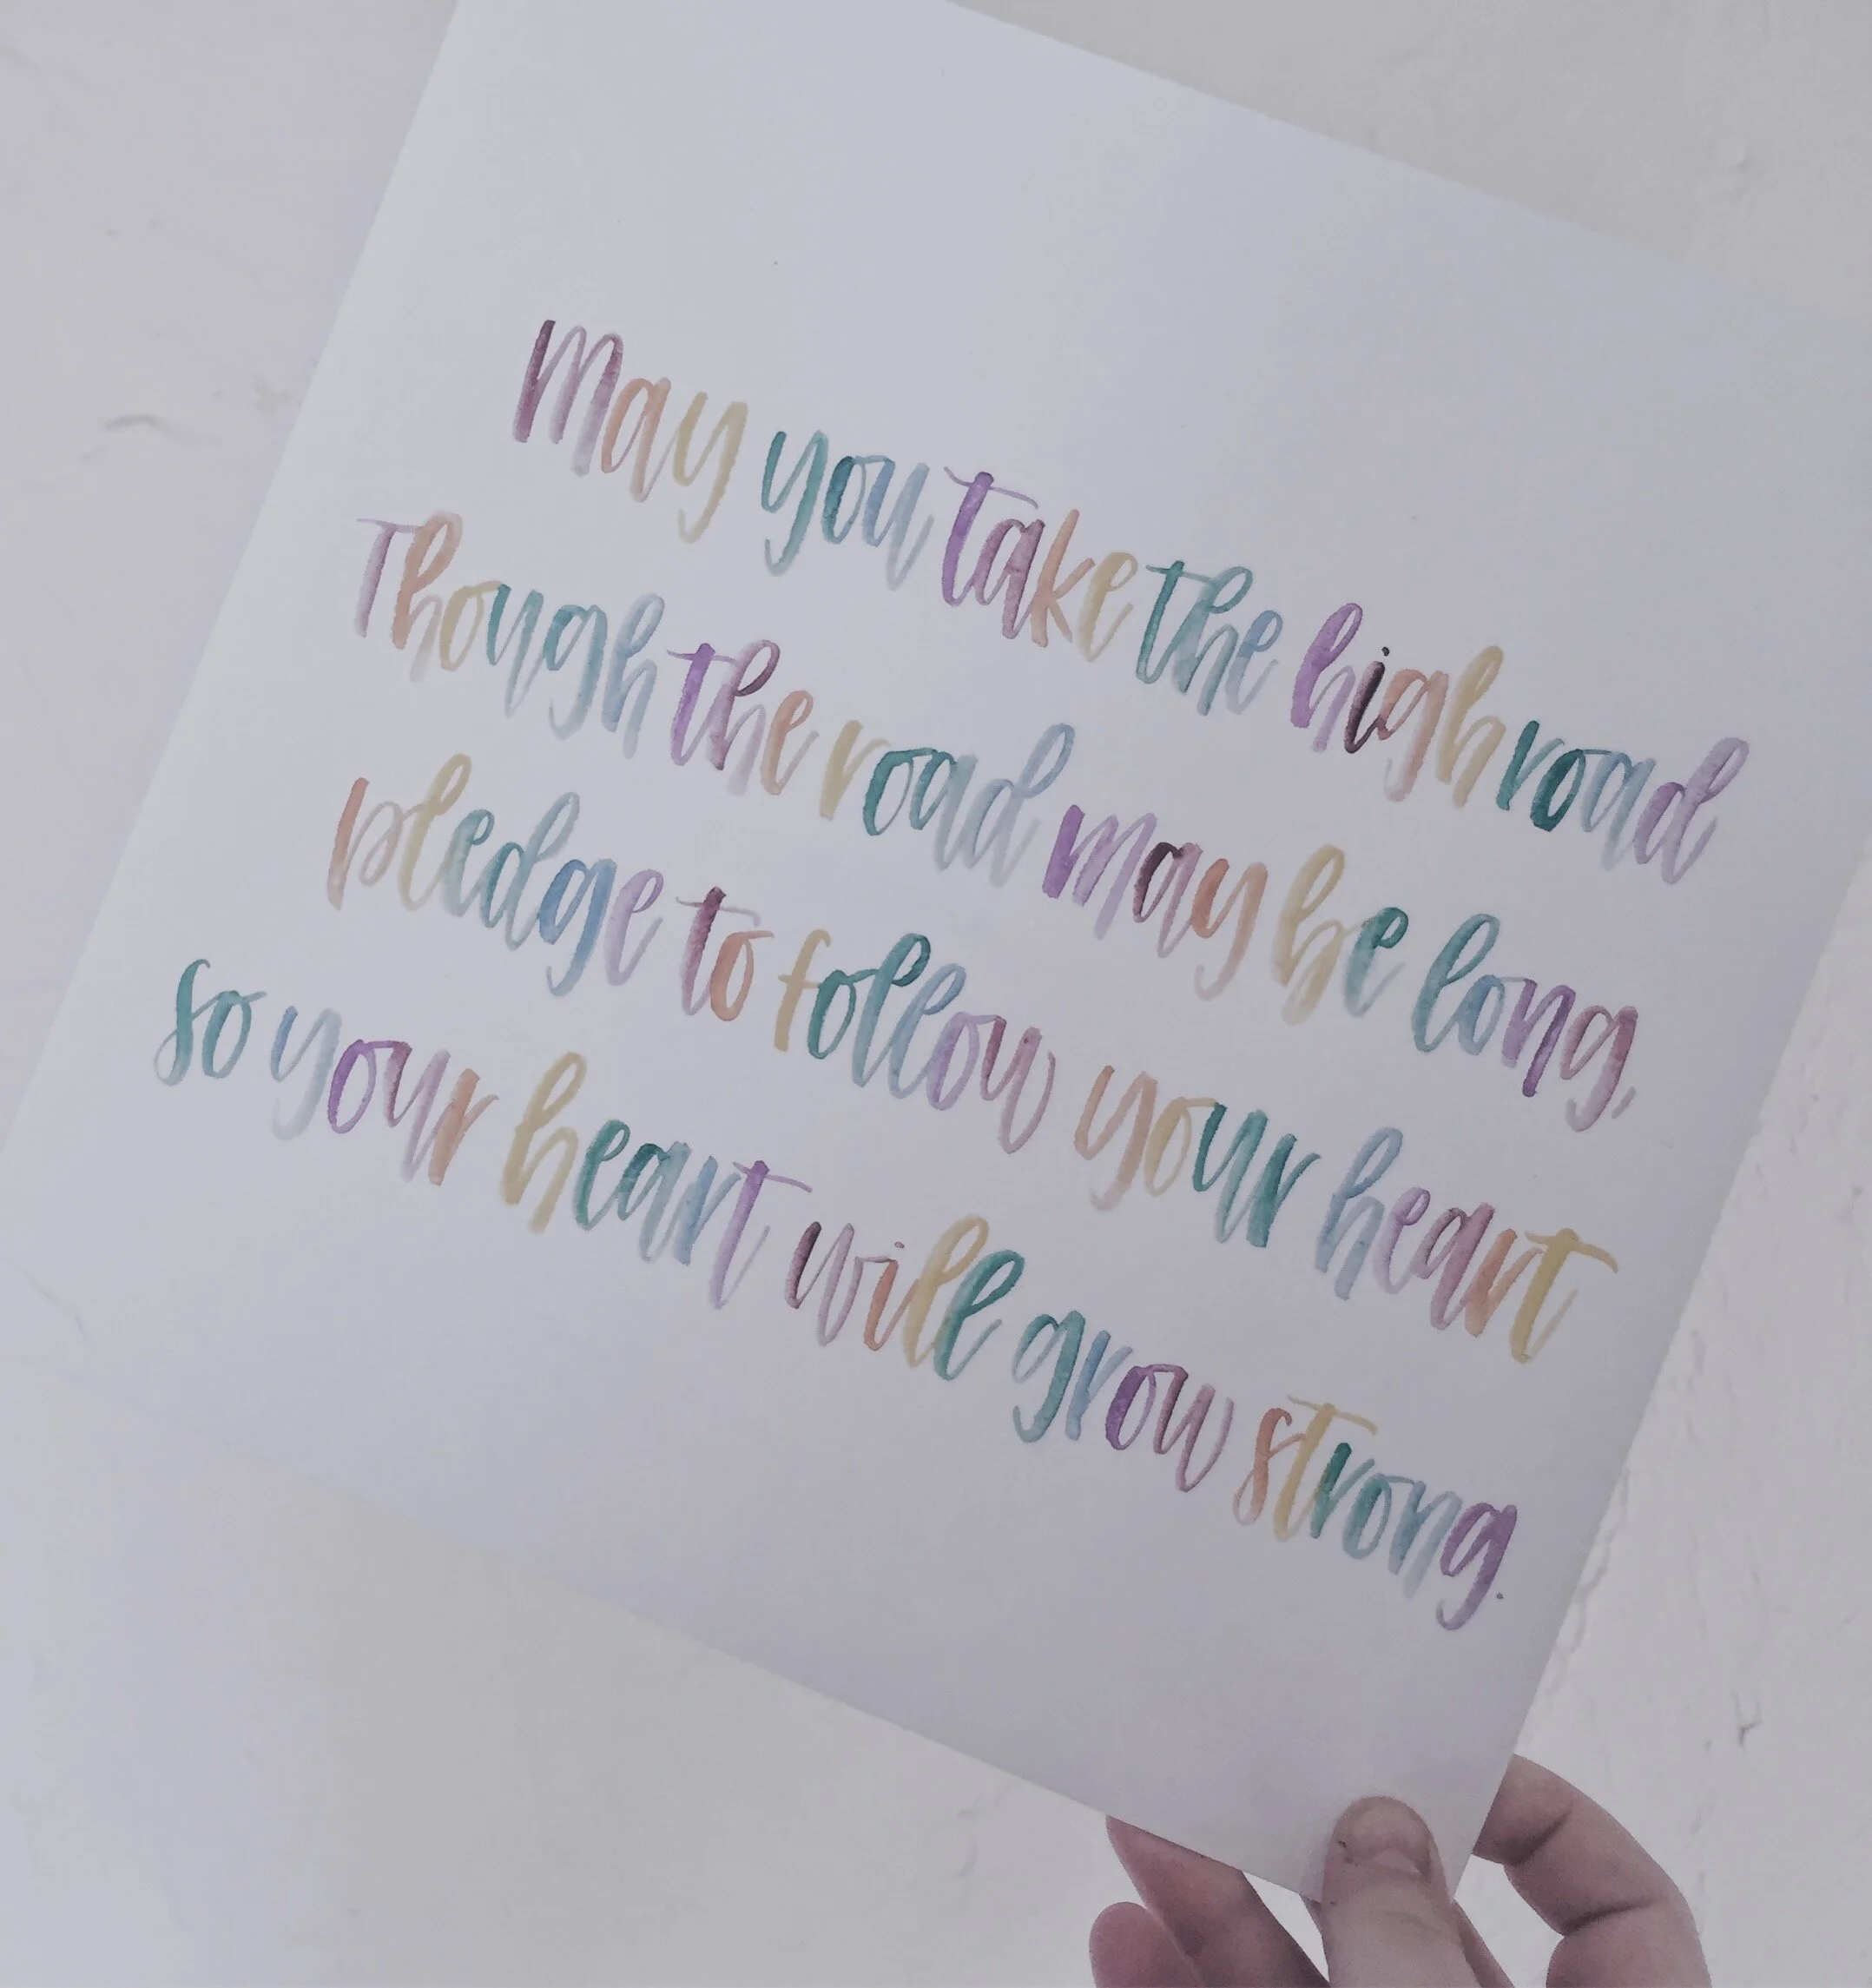 May you take the high road
Though the road may be long,
pledge to follow your heart
so your heart will grow strong.